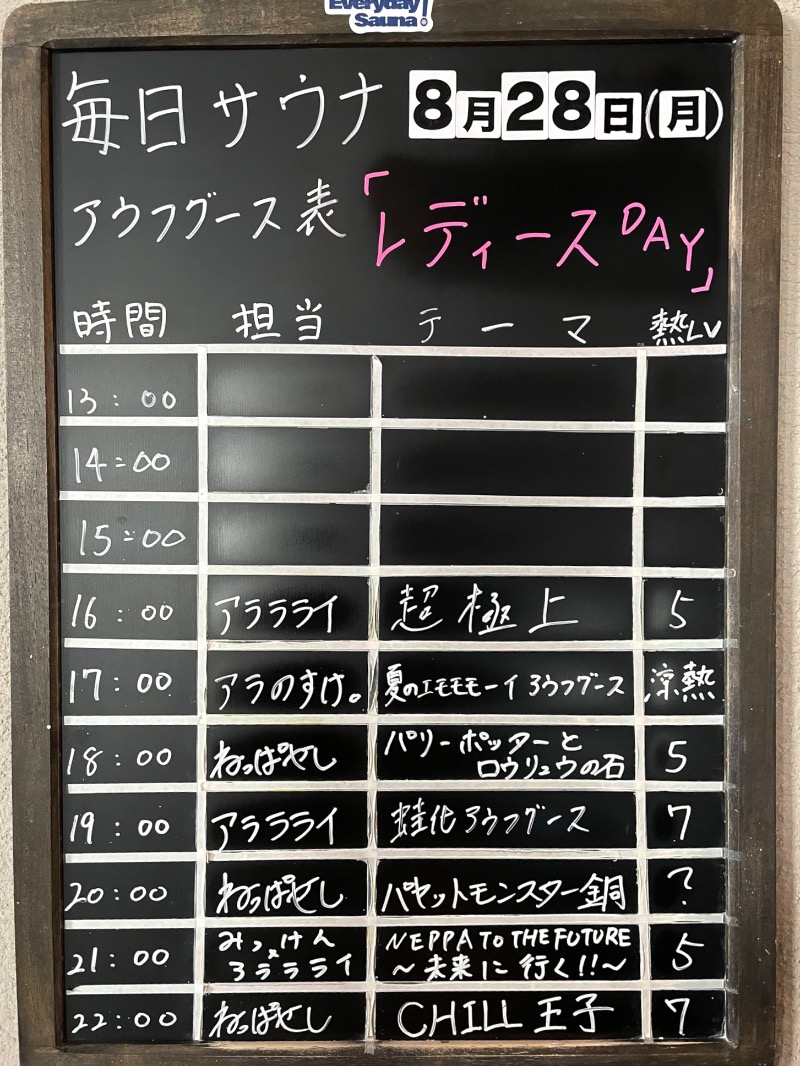 Everyday
Sauna!
毎日サウナ 8月28日(月)
アウフグース表「レディースDAY」
時間 担当 テーマ 熱LV
13:00
14:00
15:00
16:00 アララライ 超極上 5
17:00 アラのすけ。 夏のエモモモーイアウフグース 涼熱
18:00 ねっぱせし パリーポッターと
ロウリュウの石 5
19:00 アララライ 蛙化アウフグース 7
20:00 ねっぱせし パケットモンスター銅 ?
21:00 みっけん
×
アララライ NEPPA TO THE FUTURE
～未来に行く!!～ 5
22:00 ねっぱせし CHILL王子 7